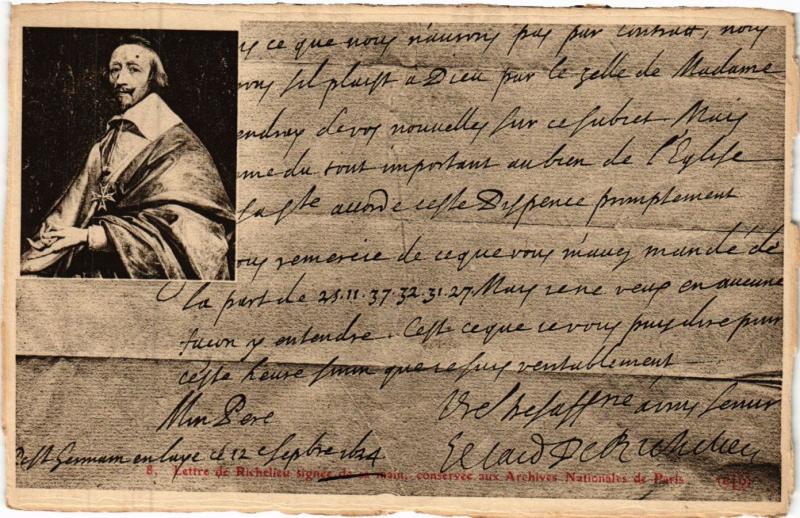 ce que nous n'aurons pas par contract, nous
s'il plaist à Dieu par le zelle de Madame
de vos nouvelles sur ce subiet Mais
du tout important au bien de l'Eglise
accorde ceste Dispence promptement
remercie de ce que vous m'avez mandé de
la part de 25.11.37.32.31.27. Mais ie ne veux en aucune
facon y entendre. C'est ce que ie vous puis dire pour
ceste heure sinon que ie suis veritablement
Mon Pere
Vre à vous servir
De St Germain en laye ce 12e Septbre 1634
Le Card De Richelieu
8. Lettre de Richelieu signée de sa main, conservée aux Archives Nationales de Paris (ELD)